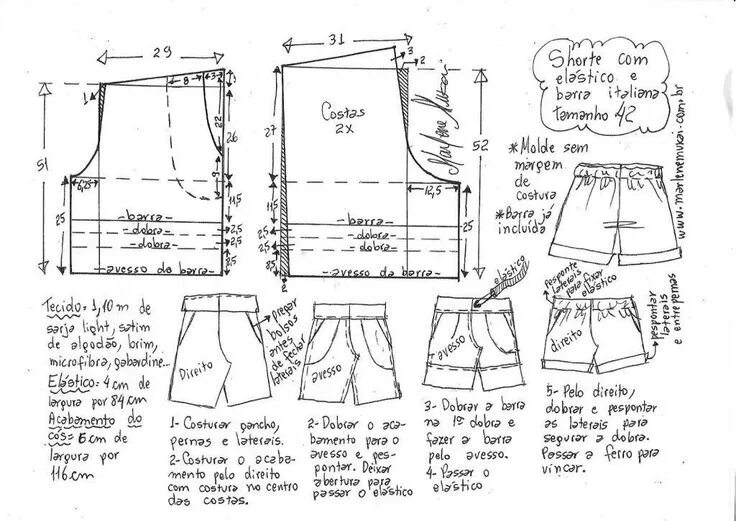 Shorte com
elástico e
barra italiana
tamanho 42
29
8
3
1
22
26
51
6,25
9
11,5
25
-barra-
-dobra-
-dobra-
2,5
2,5
avesso da barra
31
3
2
Costas
2X
27
52
12,5
11,5
25
-barra-
-dobra-
-dobra-
2,5
2,5
8,5
avesso da barra-
2
Marlene Mukai
* Molde sem
margem
de
costura
* Barra já
incluída
www.marlenemukai.com.br
Tecido= 1,10 m de
sarja light, satim
de algodão, brim,
microfibra, gabardine...
Elástico= 4 cm de
largura por 84 cm
Acabamento do
cós= 6 cm de
largura por
116 cm
Direito
pregar
bolsos
antes
de fechar
laterais
1- Costurar gancho,
pernas e laterais.
2- Costurar o acaba-
mento pelo direito
com costura no centro
das costas.
avesso
2- Dobrar o aca-
bamento para o
avesso e pes-
pontar. Deixar
abertura para
passar o elástico
elástico
avesso
3- Dobrar a barra
na 1ª dobra e
fazer a barra
pelo avesso.
4- Passar o
elástico
pesponte
laterais
para fixar
elástico
direito
pespontar
laterais
e entrepernas
5- Pelo direito,
dobrar e pespontar
as laterais para
segurar a dobra.
Passar a ferro para
vincar.